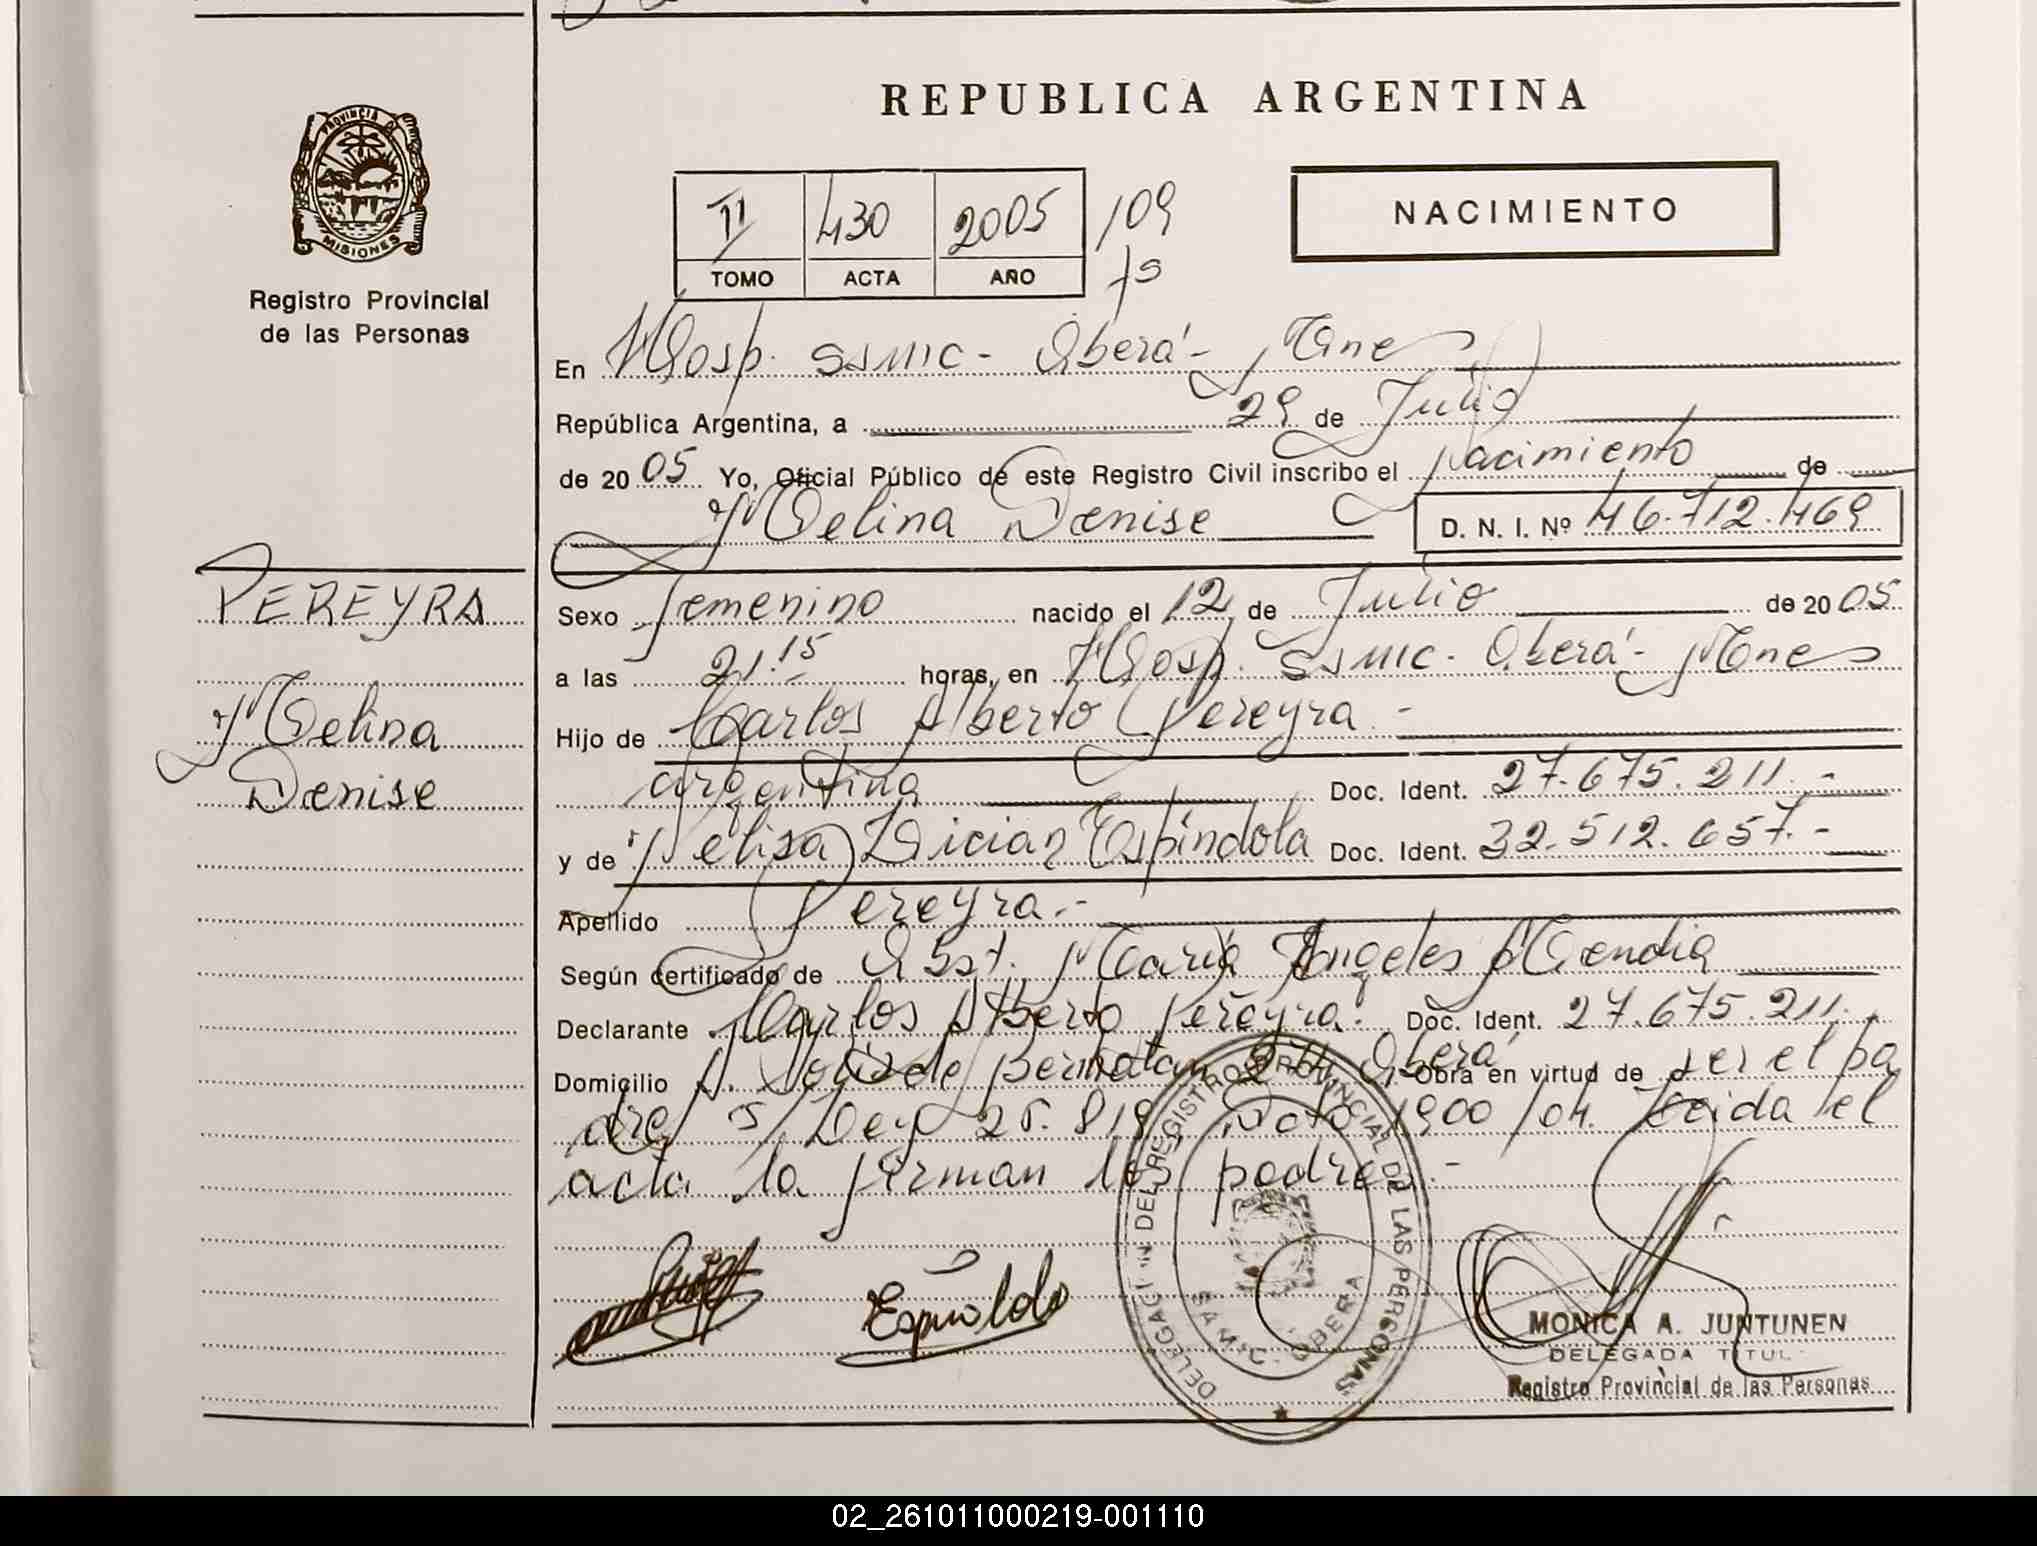 REPUBLICA ARGENTINA
PROVINCIA DE
MISIONES
Registro Provincial
de las Personas
II 430 2005 109
TOMO ACTA AÑO fs
NACIMIENTO
En Hosp. SSMIC - Oberá - Mnes
República Argentina, a 29 de Julio
de 20 05 Yo, Oficial Público de este Registro Civil inscribo el nacimiento de
Melina Denise D. N. I. Nº 46.712.469
PEREYRA
Melina
Denise
Sexo femenino nacido el 12 de Julio de 20 05
a las 21.15 horas, en Hosp. SSMIC - Oberá - Mnes
Hijo de Carlos Alberto Pereyra -
argentina Doc. Ident. 27.675.211. -
y de Espíndola Doc. Ident. 32.512.657. -
Apellido Pereyra. -
Según certificado de Obst. María Angeles Mendia
Declarante Carlos Alberto Pereyra. Doc. Ident. 27.675.211.
Domicilio Oberá Obra en virtud de ser el pa
dre s/ Ley 25.819 1900/04. Leida el
acta la firman los padres. -
Espindola
DELEGACION DEL REGISTRO PROVINCIAL DE LAS PERSONAS
SAMIC - OBERA
MONICA A. JUNTUNEN
DELEGADA TITUL
Registro Provincial de las Personas
02_261011000219-001110